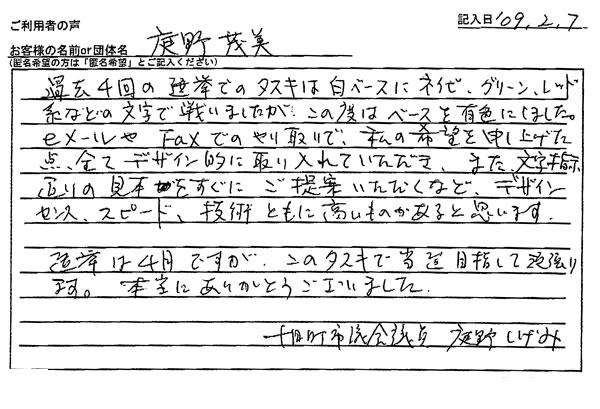 ご利用者の声
記入日 '09.2.7
お客様の名前or団体名 庭野茂美
(匿名希望の方は「匿名希望」とご記入ください)
過去4回の選挙でのタスキは白ベースにネイビ、グリーン、レッド
系などの文字で戦いましたが、この度はベースを有色にしました。
eメールや Faxでのやり取りで、私の希望を申し上げた
点、全てデザイン的に取り入れていただき、また、文字指示
通りの見本をすぐにご提案いただくなど、デザイン
センス、スピード、技術ともに高いものがあると思います。
選挙は4月ですが、このタスキで当選目指して頑張り
ます。本当にありがとうございました。
十日町市議会議員 庭野しげみ